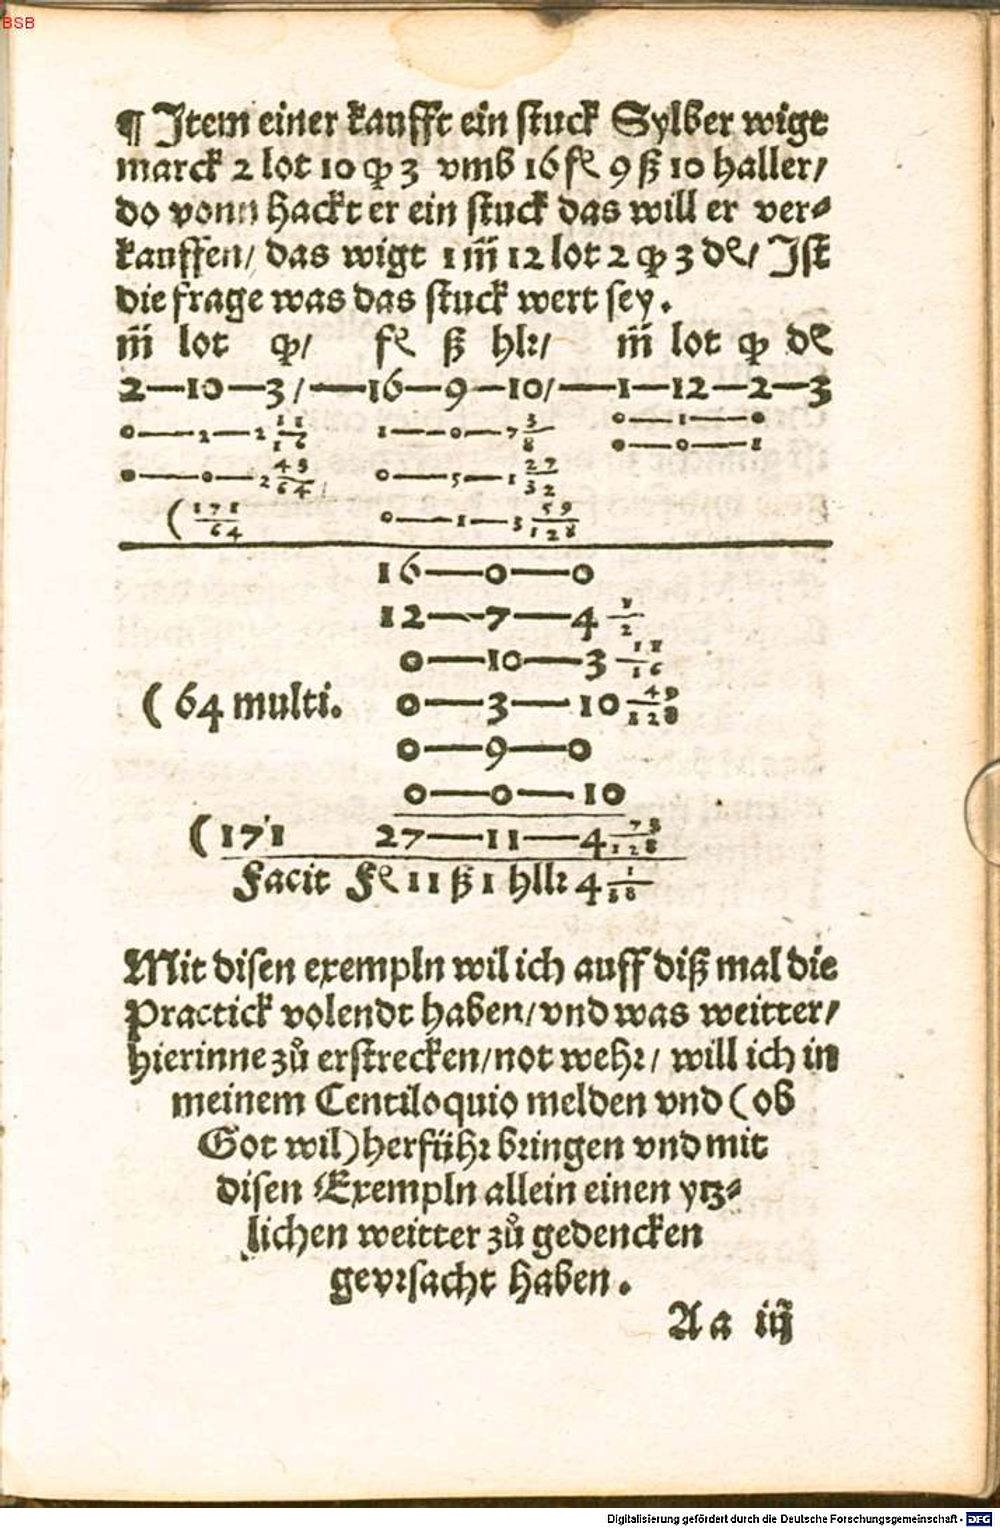 BSB
¶ Item einer kaufft ein stuck Sylber wigt
marck 2 lot 10 qͥ 3 vmb 16 fl 9 ß 10 haller/
do vonn hackt er ein stuck das will er ver⸗
kauffen/ das wigt 1 m̃ 12 lot 2 qͥ 3 dl/ Ist
die frage was das stuck wert sey.
m̃ lot qͥ/ fl ß hlr/ m̃ lot qͥ dl
2—10—3/—16—9—10/—1—12—2—3
0—2—2 11/16 1—0—7 3/8 0—1—0
0—0—2 43/64 0—5—1 27/32 0—0—1
(171/64 0—1—3 59/128
16—0—0
12—7—4 1/2
0—10—3 11/16
(64 multi. 0—3—10 49/128
0—9—0
0—0—10
(171 27—11—4 73/128
Facit Fl 11 ß 1 hllr 4
Mit disen exempln wil ich auff diß mal die
Practick volendt haben/vnd was weitter/
hierinne zů erstrecken/not wehr/ will ich in
meinem Centiloquio melden vnd (ob
Got wil) herführ bringen vnd mit
disen Exempln allein einen ytz⸗
lichen weitter zů gedencken
gevrsacht haben.
Aa iij
Digitalisierung gefördert durch die Deutsche Forschungsgemeinschaft - DFG